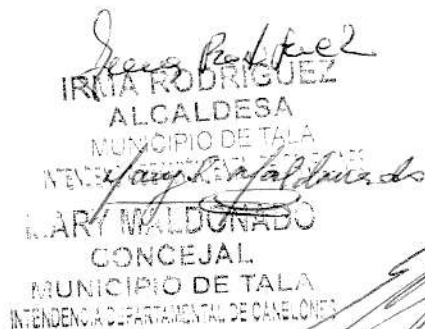 Irma Rodríguez
IRMA RODRIGUEZ
ALCALDESA
MUNICIPIO DE TALA
Mary Maldonado
MARY MALDONADO
CONCEJAL
MUNICIPIO DE TALA
INTENDENCIA DEPARTAMENTAL DE CANELONES